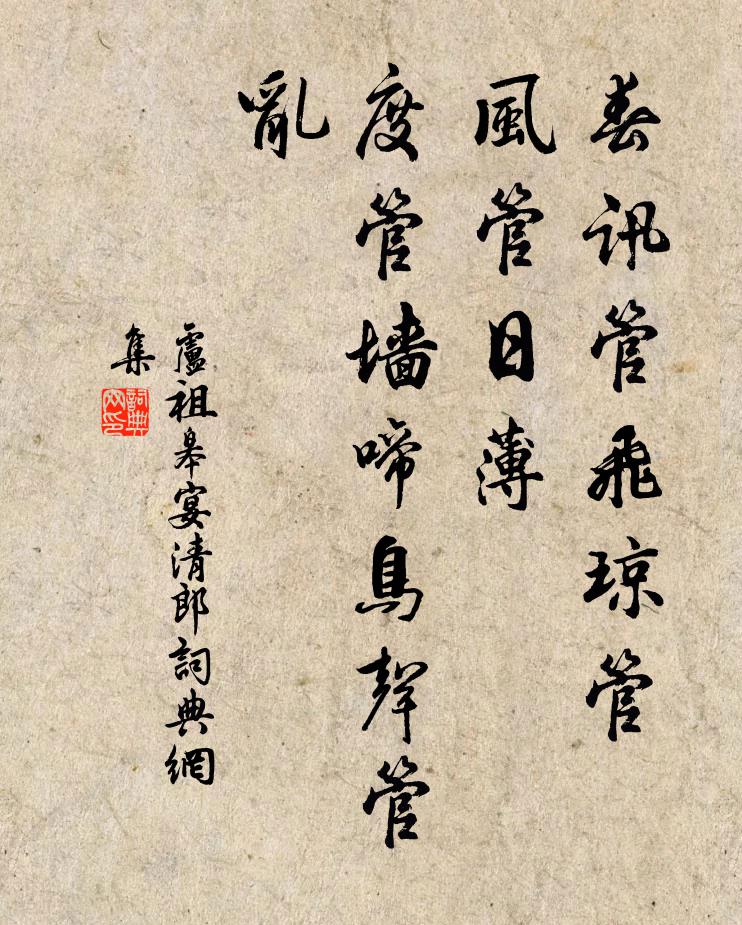 春訊管飛琼管
風管日薄
度管墙啼鳥聲管
亂
盧祖皋宴清郎詞典網
集
詞典
网印